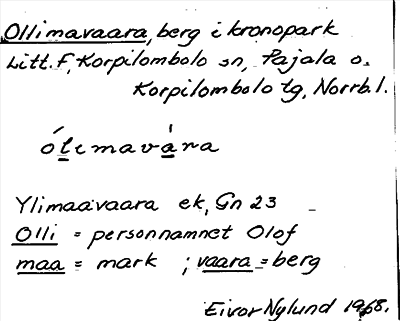 Ollimavaara, berg i kronopark
Litt. F, Korpilombolo sn, Pajala o.
Korpilombolo tg, Norrb. l.
ólimavàra
Ylimaavaara ek, Gn 23
Olli = personnamnet Olof
maa = mark ; vaara = berg
Eivor Nylund 1968.